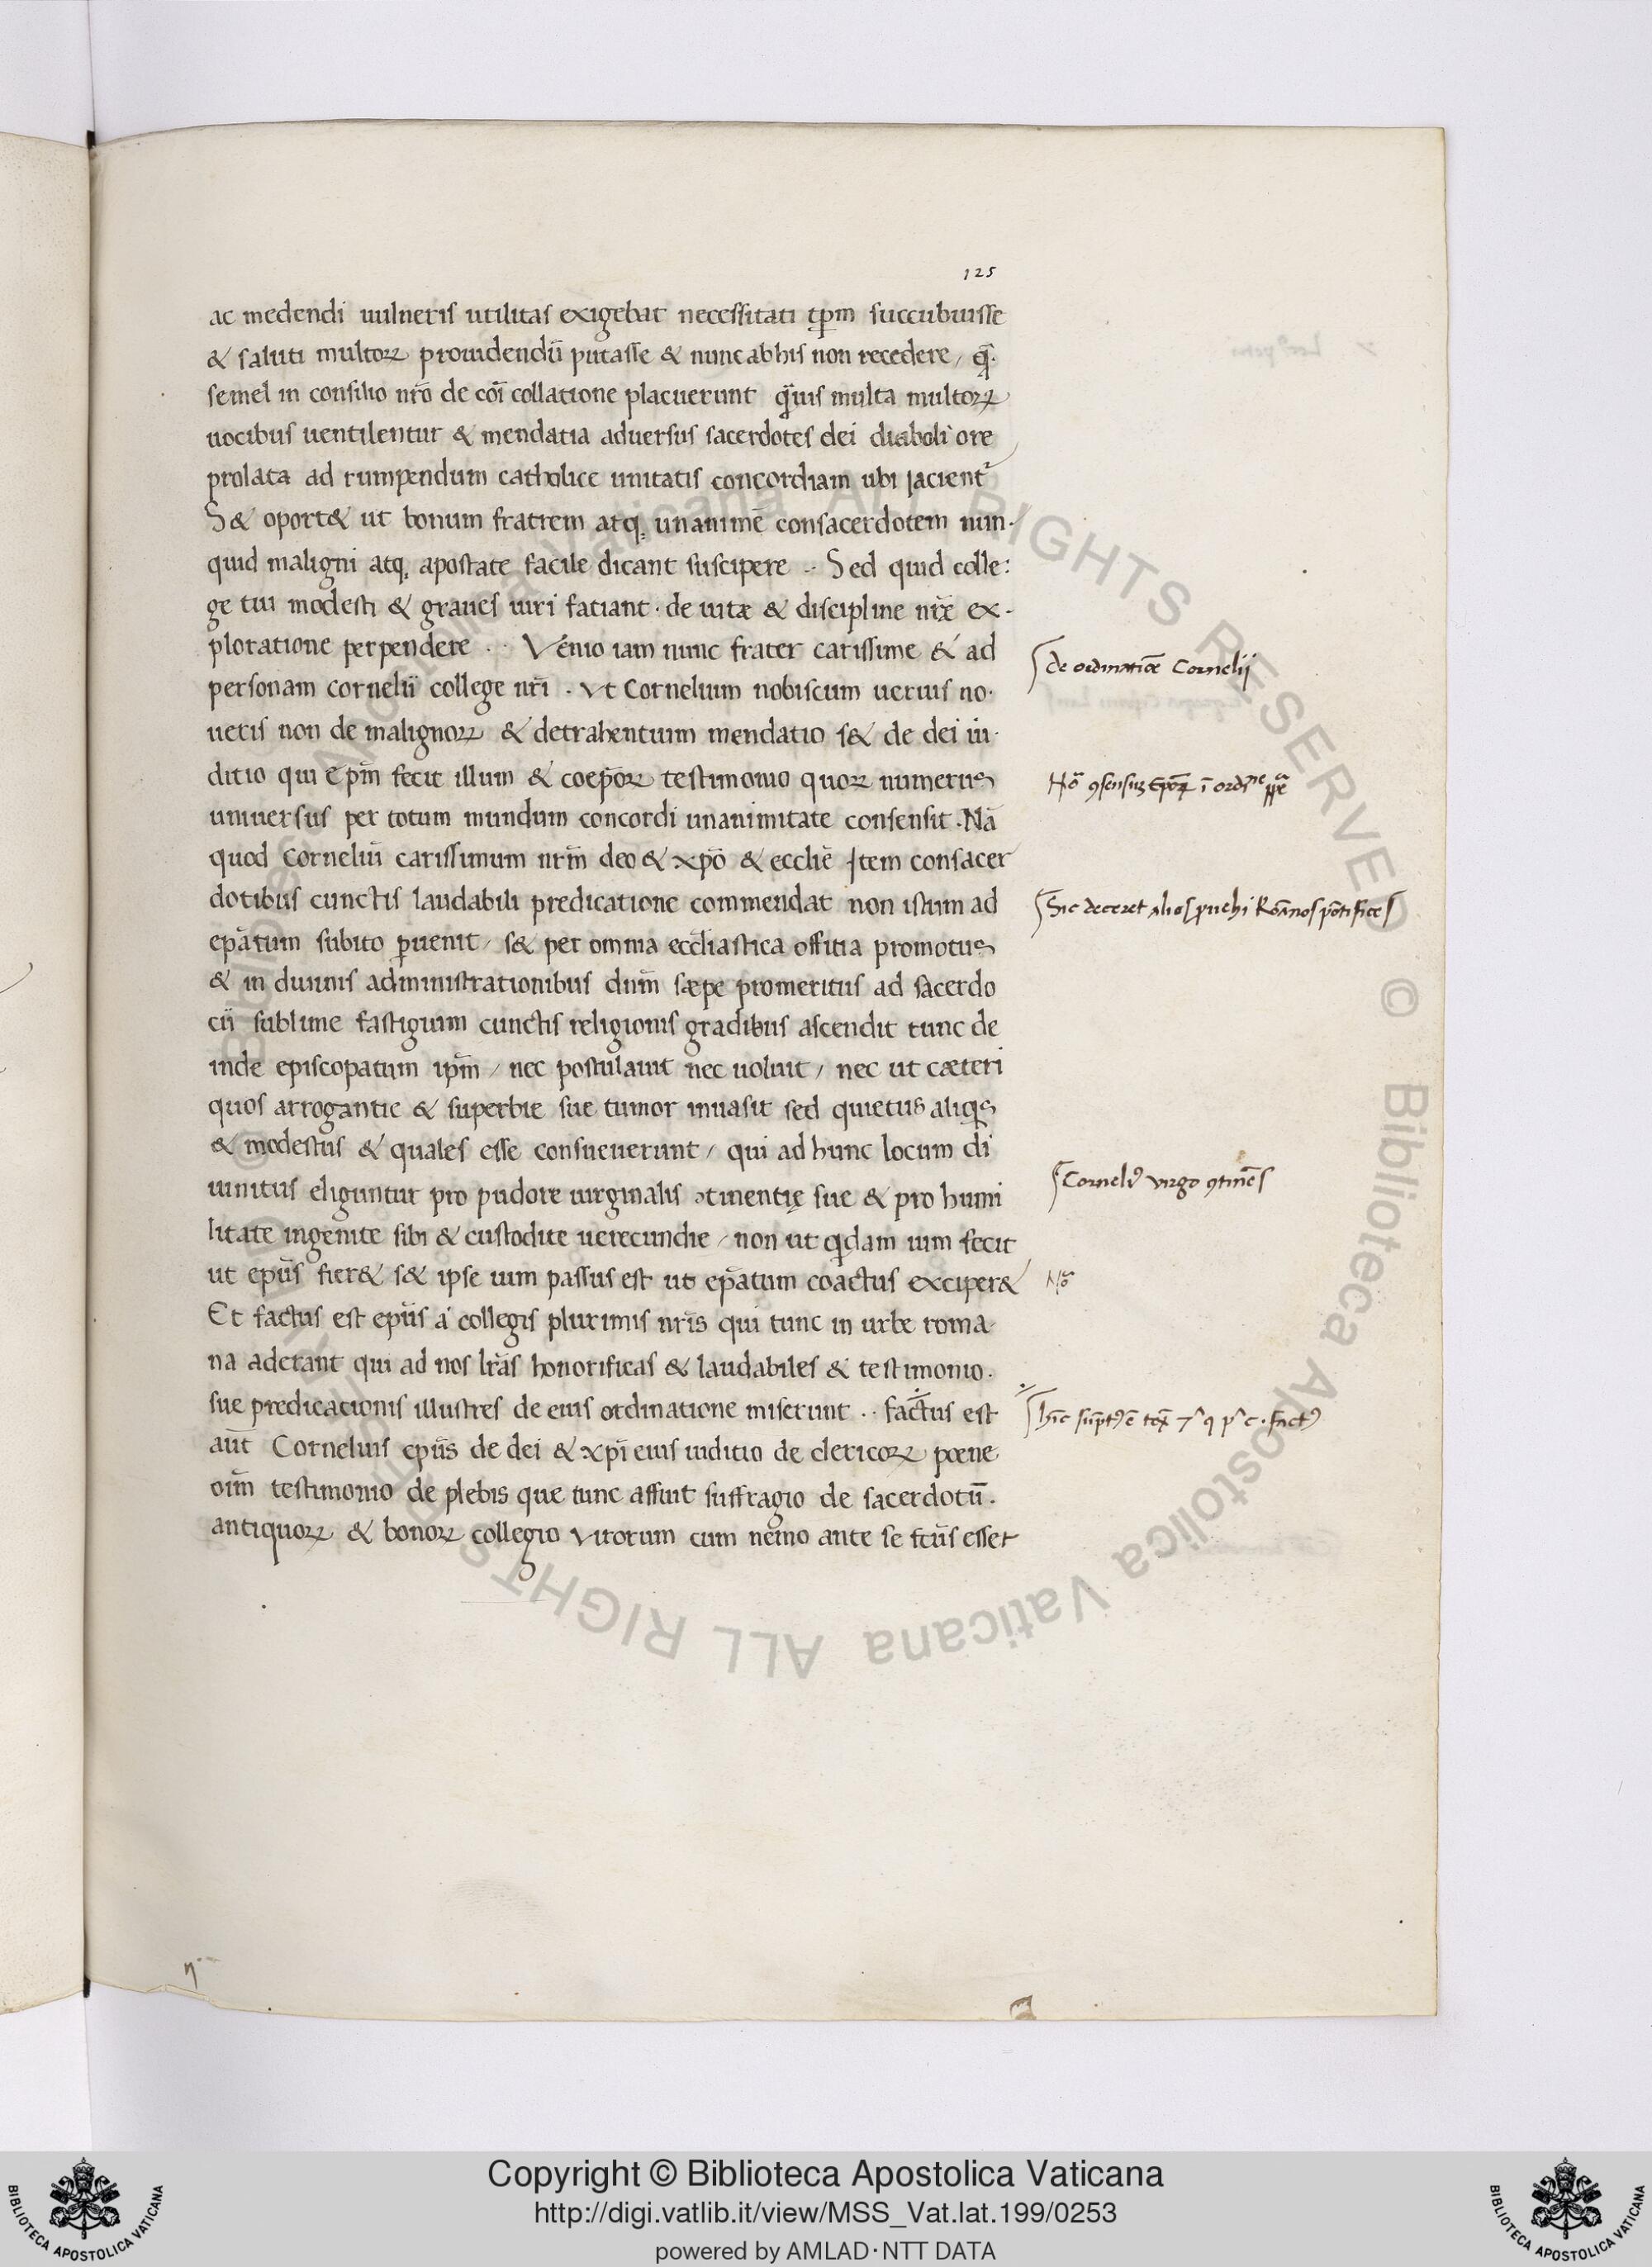 125
ac medendi uulneris utilitas exigebat necessitati tp̄m succubuisse
& saluti multoꝝ prouidendū putasse & nunc ab his non recedere, q̄.
semel in consilio nr̄o de cōi collatione placuerunt q̄uis multa multoꝝ
uocibus uentilentur & mendatia aduersus sacerdotes dei diaboli ore
prolata ad rumpendum catholice unitatis concordiam ubi jacient᷑
S& oport& ut bonum fratrem atq; unanimē consacerdotem nun.
quid maligni atq; apostate facile dicant suscipere .. Sed quid colle:
ge tui modesti & graues uiri fatiant . de uitæ & discipline nr̄æ ex.
ploratione perpendere .. Venio iam nunc frater carissime & ad
personam cornelii college nr̄i . Vt Cornelium nobiscum uerius no.
ueris non de malignoꝝ & detrahentium mendatio s& de dei iu.
ditio qui ep̄m fecit illum & coep̄oꝝ testimonio quoꝝ numerus
uniuersus per totum mundum concordi unanimitate consensit . Nā
quod Corneliū carissimum nr̄m deo & xp̄o & eccliē Jtem consacer
dotibus cunctis laudabili predicatione commendat non istum ad
ep̄atum subito ꝑuenit, s& per omnia eccl̄iastica offitia promotus
& in diuinis administrationibus dn̄m sæpe promeritus ad sacerdo
cii sublime fastigium cunctis religionis gradibus ascendit tunc de
inde episcopatum ip̄m, nec postulauit nec uoluit, nec ut cæteri
quos arrogantie & superbie sue tumor inuasit sed quietus aliq̄s
& modestus & quales esse consueuerunt, qui ad hunc locum di
uinitus eliguntur pro pudore uirginalis ꝯtinentię sue & pro humi
litate ingenite sibi & custodite uerecundie, non ut q̄dam uim fecit
ut ep̄us fier& s& ipse uim passus est ut ep̄atum coactus exciper&
Et factus est ep̄us a collegis plurimis nr̄is qui tunc in urbe roma
na aderant qui ad nos lr̄as honorificas & laudabiles & testimonio.
sue predicacionis illustres de eius ordinatione miserunt .. factus est
aūt Cornelius ep̄us de dei & xp̄i eius iuditio de clericoꝝ pœne
oīm testimonio de plebis que tunc affuit suffragio de sacerdotū.
antiquoꝝ & bonoꝝ collegio Virorum cum nemo ante se fc̄us esset
de ordinatiōe Cornelij
Nō ꝯsensus ep̄oꝝ ī ordīne
Sic deceret alios ꝓuehi Rōanos pōtifices
Corneli᷒ virgo ꝯtinēs
Nō
Copyright © Biblioteca Apostolica Vaticana
http://digi.vatlib.it/view/MSS_Vat.lat.199/0253
powered by AMLAD·NTT DATA
BIBLIOTECA APOSTOLICA VATICANA
BIBLIOTECA APOSTOLICA VATICANA
© Biblioteca Apostolica Vaticana ALL RIGHTS RESERVED © Biblioteca Apostolica Vaticana ALL RIGHTS RESERVED